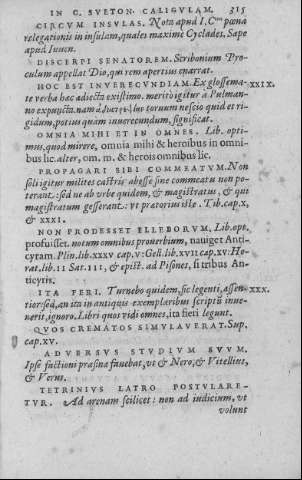 IN C. SVETON. CALIGVLAM. 315
CIRCVM INSVLAS. Nota apud I. C.tos pœna
relegationis in insulam, quales maxime Cyclades. Sæpe
apud Iuuen.
DISCERPI SENATOREM. Scribonium Pro-
culum appellat Dio, qui rem apertius enarrat.
HOC EST INVERECVNDIAM. Ex glossema- XXIX.
te verba hæc adiecta existimo. merito igitur a Pulman-
no expuncta. nam horum nescio quid et ri-
gidum, potius quam inuerecundum, significat.
OMNIA MIHI ET IN OMNES. Lib. opti-
mus, quod mirere, omnia mihi & heroibus in omni-
bus lic. alter, om. m. & herois omnibus lic.
PROPAGARI SIBI COMMEATVM. Non
soli igitur milites castris abesse sine commeatu non po-
terant. sed ne ab vrbe quidem, & magistratus, & qui
magistratum gesserant: vt prætorius iste. Tib. cap. x,
& XXXI.
NON PRODESSET ELLEBORVM. Lib. opt.
profuisset. notum omnibus prouerbium, nauiget Anti-
cyram. Plin. lib. XXXV cap. V: Gell. lib. XVII cap. XV: Ho-
rat. lib. II Sat. III, & epist. ad Pisones, si tribus An-
ticyris.
ITA FERI. Turnebo quidem, sic legenti, assen- XXX.
tior: sed, an ita in antiquis exemplaribus scriptū inue-
nerit, ignoro. Libri quos vidi omnes, ita fieri legunt.
QVOS CREMATOS SIMVLAVERAT. Sup.
cap. XV.
ADVERSVS STVDIVM SVVM.
Ipse factioni prasinæ fauebat, vt & Nero, & Vitellius,
& Verus.
TETRINIVS LATRO POSTVLARE-
TVR. Ad arenam scilicet: non ad iudicium, vt
volunt